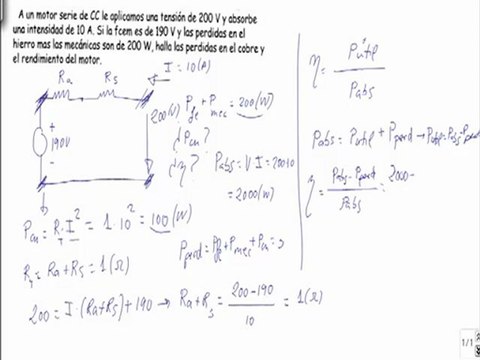 A un motor serie de CC le aplicamos una tensión de 200 V y absorbe
una intensidad de 10 A. Si la fcem es de 190 V y las perdidas en el
hierro mas las mecánicas son de 200 W, halla las perdidas en el cobre y
el rendimiento del motor.
Ra Rs I = 10(A)
200(V)
+
190V
-
Pfe + Pmec = 200(W)
¿Pcu?
¿η?
Pabs = V·I = 200·10
= 2000(W)
Pcu = R_T·I² = 1·10² = 100(W)
R_T = Ra + Rs = 1(Ω)
Pperd = Pfe + Pmec + Pcu =
200 = I·(Ra+Rs) + 190 → Ra + Rs = (200-190)/10 = 1(Ω)
η = Pútil/Pabs
Pabs = Putil + Pperd → Putil = Pabs - Pperd
η = (Pabs - Pperd)/Pabs = 2000 -
1/1